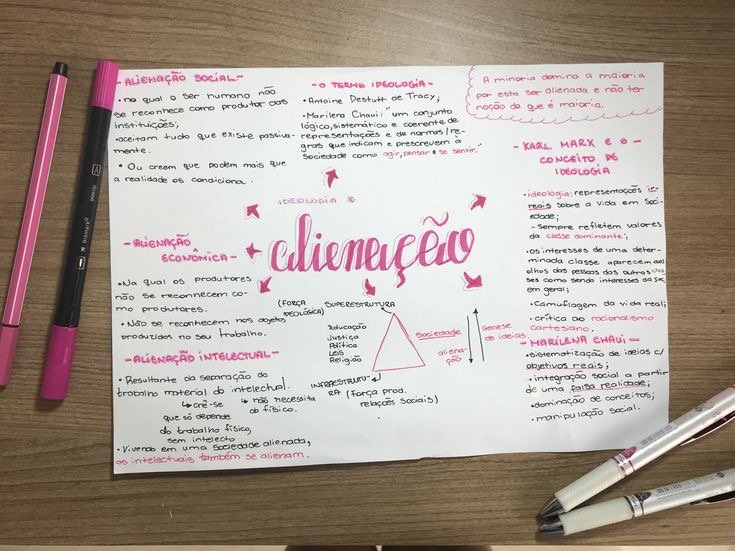 - ALIENAÇÃO SOCIAL -
• na qual o ser humano não
se reconhece como produtor das
instituições;
• aceitam tudo que existe passiva-
mente.
• Ou creem que podem mais que
a realidade os condiciona.
- O TERMO IDEOLOGIA -
• Antoine Destutt de Tracy;
• Marilena Chaui: "um conjunto
lógico, sistemático e coerente de
representações e de normas/re-
gras que indicam e prescrevem à
sociedade como agir, pensar e se sentir."
A minoria domina a maioria
por esta ser alienada e não ter
noção de que é maioria.
- KARL MARX E O -
CONCEITO DE
IDEOLOGIA
• ideologia: representações ir-
reais sobre a vida em soci-
edade;
- sempre refletem valores
da classe dominante;
• os interesses de uma deter-
minada classe aparecem aos
olhos das pessoas das outras clas-
ses como sendo interesses da soc.
em geral;
• Camuflagem da vida real;
• crítica ao racionalismo
cartesiano.
- MARILENA CHAUI -
• sistematização de ideias c/
objetivos reais;
• integração social a partir
de uma falsa realidade;
• dominação de conceitos;
• manipulação social.
IDEOLOGIA &
alienação
- ALIENAÇÃO
ECONÔMICA -
• Na qual os produtores
não se reconhecem co-
mo produtores.
• Não se reconhecem nos objetos
produzidos no seu trabalho.
- ALIENAÇÃO INTELECTUAL -
• Resultante da separação do
trabalho material do intelectual.
↳ crê-se
que só depende
do trabalho físico,
sem intelecto
↳ não necessita
do físico.
• Vivendo em uma sociedade alienada,
os intelectuais também se alienam.
(FORÇA
IDEOLÓGICA)
SUPERESTRUTURA
Educação
Justiça
Política
Leis
Religião
Sociedade
alienação
Gênese
de ideias
INFRAESTRUTU-
RA (Força prod.
relações sociais)